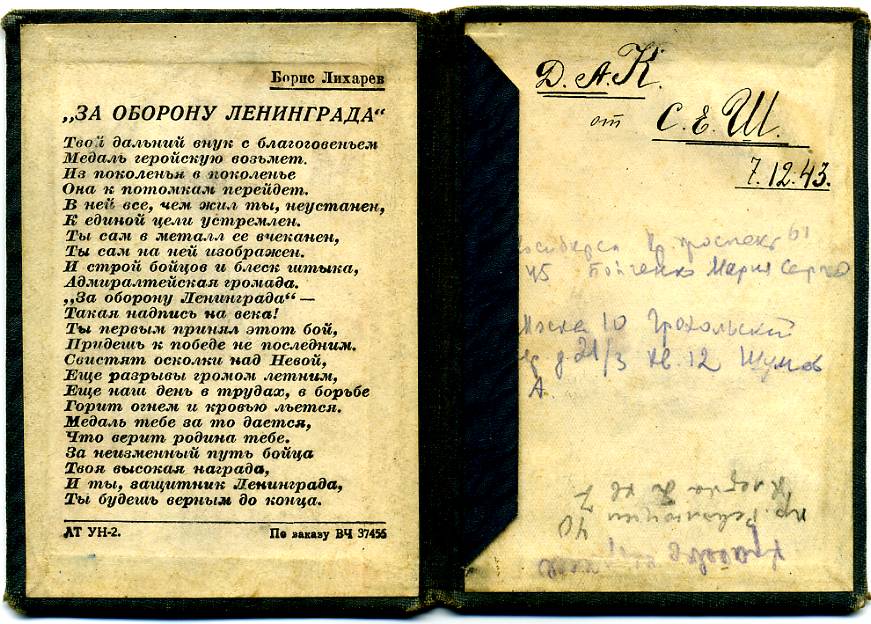 Борис Лихарев
„ЗА ОБОРОНУ ЛЕНИНГРАДА“
Твой дальний внук с благоговеньем
Медаль геройскую возьмет.
Из поколенья в поколенье
Она к потомкам перейдет.
В ней все, чем жил ты, неустанен,
К единой цели устремлен.
Ты сам в металл ее вчеканен,
Ты сам на ней изображен.
И строй бойцов и блеск штыка,
Адмиралтейская громада.
„За оборону Ленинграда“ —
Такая надпись на века!
Ты первым принял этот бой,
Придешь к победе не последним.
Свистят осколки над Невой,
Еще разрывы громом летним,
Еще наш день в трудах, в борьбе
Горит огнем и кровью льется.
Медаль тебе за то дается,
Что верит родина тебе.
За неизменный путь бойца
Твоя высокая награда,
И ты, защитник Ленинграда,
Ты будешь верным до конца.
ЛТ УН-2. По заказу ВЧ 37455
Д. А. К.
от С. Е. Ш.
7.12.43.
проспект 61
45 Бойченко Мария
10 Грохольский
д 21/3 кв. 12 Шумов
А.
пр. Революции 40
кв 7